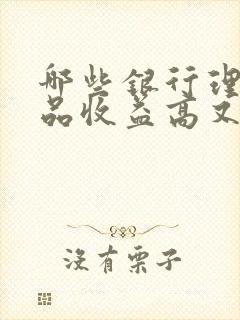 哪些银行理
品收益高又
没有栗子